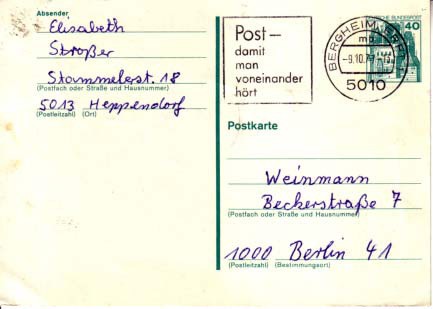 Absender
Elisabeth
Stroßer
Stommelerst. 18
(Postfach oder Straße und Hausnummer)
5013 Heppendorf
(Postleitzahl) (Ort)
Post –
damit
man
voneinander
hört
BERGHEIM, ERFT
-9.10.
5010
DEUTSCHE BUNDESPOST
40
Postkarte
Weinmann
Beckerstraße 7
(Postfach oder Straße und Hausnummer)
1000 Berlin 41
(Postleitzahl) (Bestimmungsort)